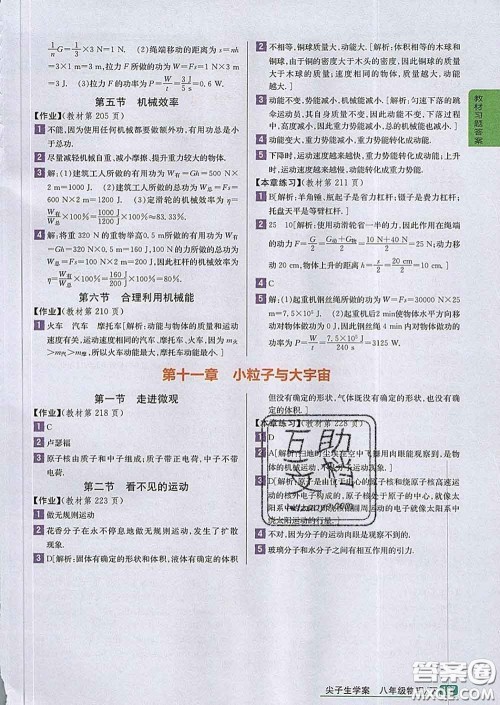 1/n G=1/3×3 N=1 N. (2)绳端移动的距离为 s=nh
=3×1 m=3 m, 拉力 F 所做的功为 W=Fs=1 N×3 m
=3 J. (3)拉力 F 的功率为 P=W/t=3 J/5 s=0.6 W.
第五节 机械效率
【作业】(教材第 205 页)
1 不能,因为使用任何机械都要做额外功,有用功总小
于总功.
2 尽量减轻机械自重,减小摩擦,提升重力较大的物体.
3 解:(1)建筑工人所做的有用功为 W有=Gh=1000 N×
(2)建筑工人所做的总功为 W总=Fs=
(3)定滑轮的机械效率为 η=
W有/W总×100%=1000 J/1200 J×100%≈83.33%.
4 解:将重 320 N 的重物举高 0.5 m 所做的有用功为
W有=Gh=320 N×0.5 m=160 J, 工人所做的总功为
W总=Fs=100 N×2 m=200 J, 杠杆的机械效率为
η=W有/W总×100%=160 J/200 J×100%=80%.
第六节 合理利用机械能
【作业】(教材第 210 页)
1 火车 汽车 摩托车[解析:动能与物体的质量和运动
速度有关,运动速度相同的火车、汽车、摩托车,因为 m火
>m汽>m摩托,所以火车动能最大,摩托车动能最小.]
2 不相等,铜球质量大,动能大.[解析:体积相等的木球和
铜球,由于铜的密度大于木头的密度,因此铜球的质量
大于木球的质量;速度相同的物体,质量越大,动能
越大.]
3 动能不变,势能减小,机械能减小.[解析:匀速下落的跳
伞运动员,其质量和速度不变,因此动能不变,由于下
落,高度减小,则重力势能减小,机械能减小.]
4 动能变大,重力势能变小,重力势能转化成动能.
5 下降时,运动速度越来越快,重力势能转化成动能;上升
时,运动速度越来越慢,动能转化成重力势能.
【本章练习】(教材第 211 页)
1 B[解析:羊角锤、瓶起子是省力杠杆;镊子是费力杠杆;
托盘天平是等臂杠杆.]
2 25 10[解析:使用动滑轮省一半的力,因此作用在绳端
的动力 F=G/2=(G物+G动)/2=(10 N+40 N)/2=25 N; 动力移
动 20 cm,物体上升的距离 h=s/2=20 cm/2=10 cm.]
4 C
5 解:(1)起重机钢丝绳所做的功 W=Fs=30000 N×25
m=7.5×10⁵ J. (2)起重机后2 min使物体水平方向移
动对物体做功为 0 J, 因此起重机在4 min内对物体做
功的功率为 P=W/t=7.5×10⁵ J/240 s=3125 W.
教材习题答案
第十一章 小粒子与大宇宙
第一节 走进微观
【作业】(教材第 218 页)
1 C
2 卢瑟福
3 原子核由质子和中子组成;质子带正电荷,中子不带
电荷.
第二节 看不见的运动
【作业】(教材第 223 页)
1 做无规则运动
2 花香分子在永不停息地做无规则运动,发生了扩散
现象.
3 D[解析:固体有确定的形状和体积,液体有确定的体积
但没有确定的形状,气体既没有确定的形状,也没有确
定的体积.]
【本章练习】(教材第 228 页)
1 D
2 A[解析:扫地时尘埃在空中飞舞用肉眼能观察到,是物
3 D
4 不对,因为分子的运动肉眼是观察不到的.
5 玻璃分子和水分子之间有相互作用的引力.
互助文档
尖子生学案 八年级物理
答案圈